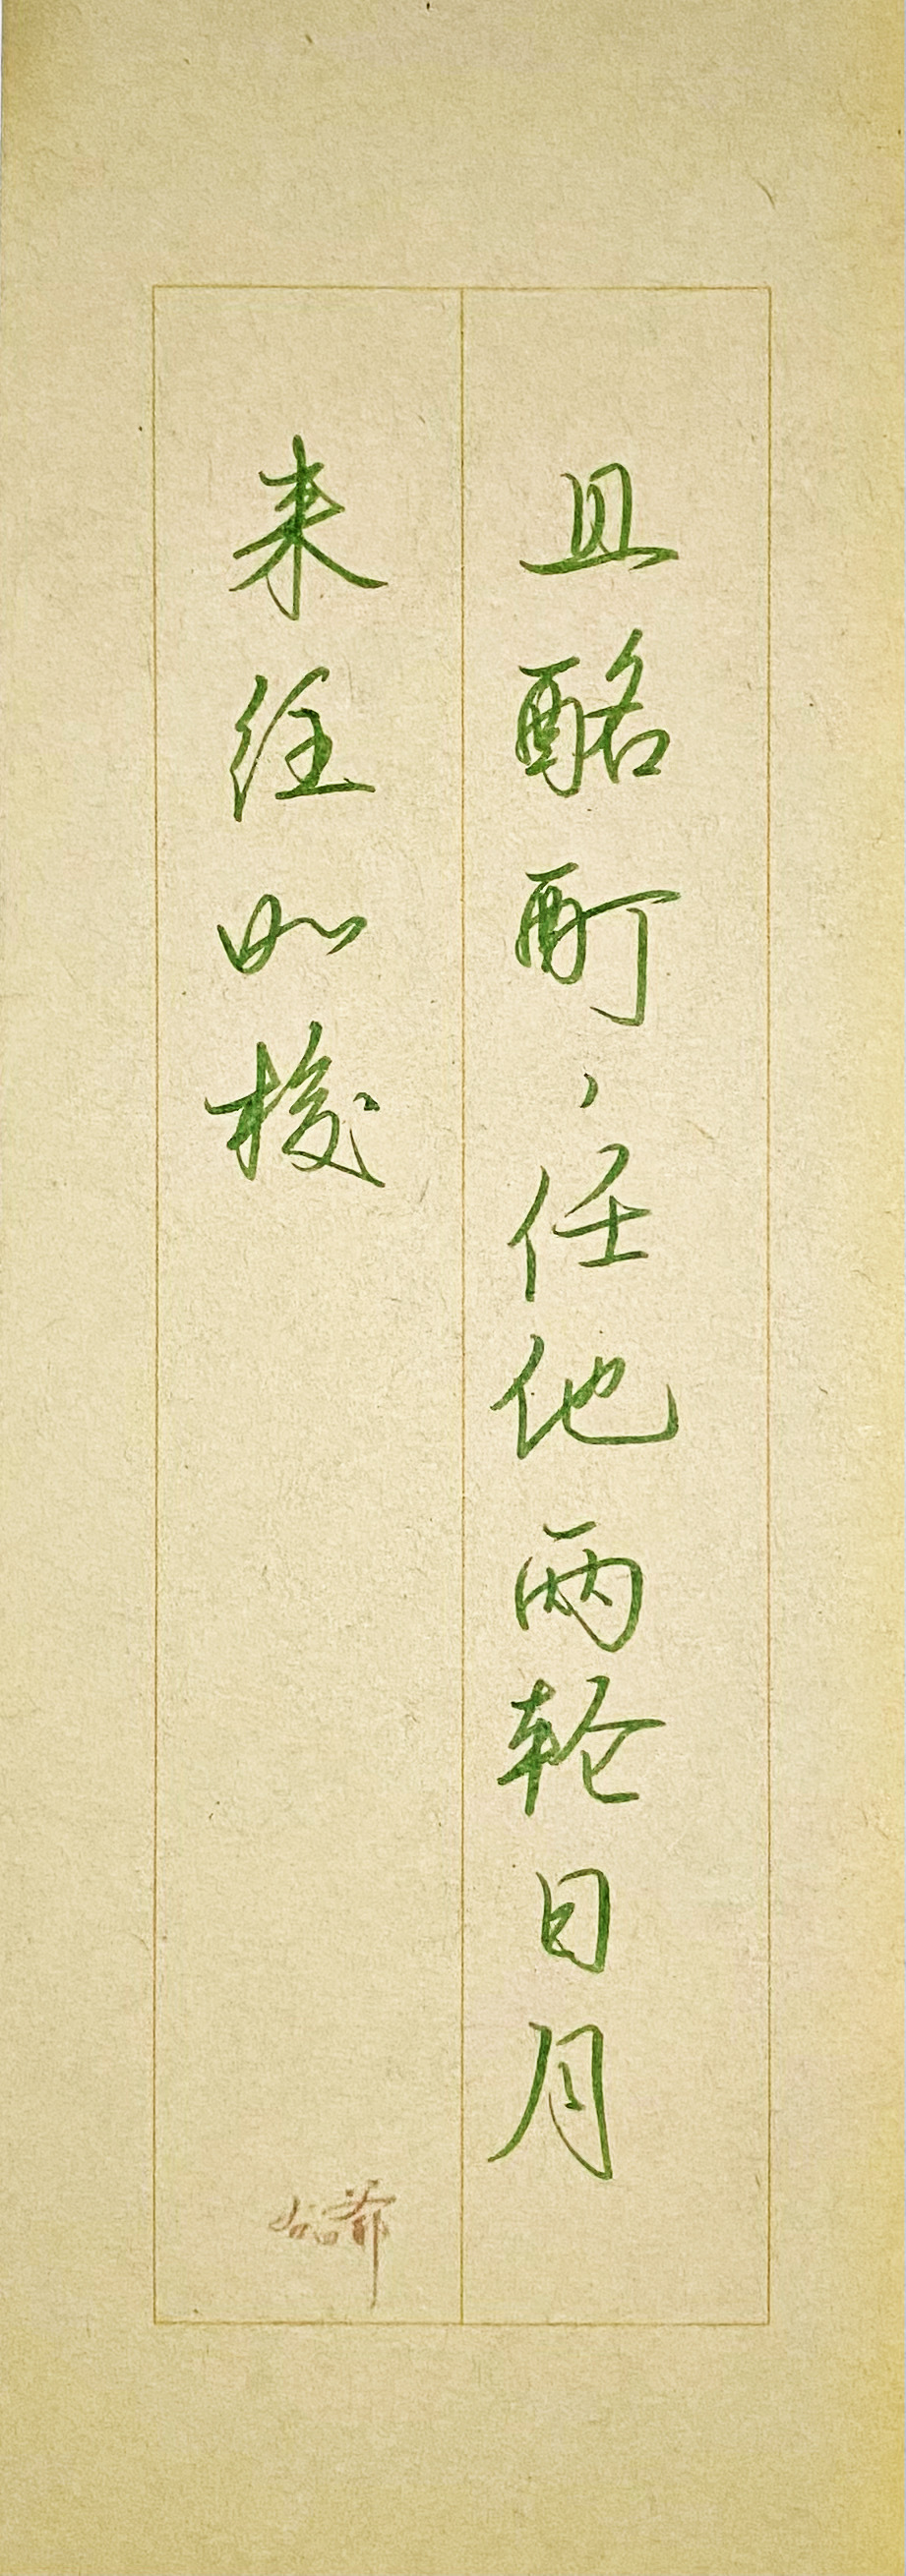 且酩酊，任他两轮日月
来往如梭